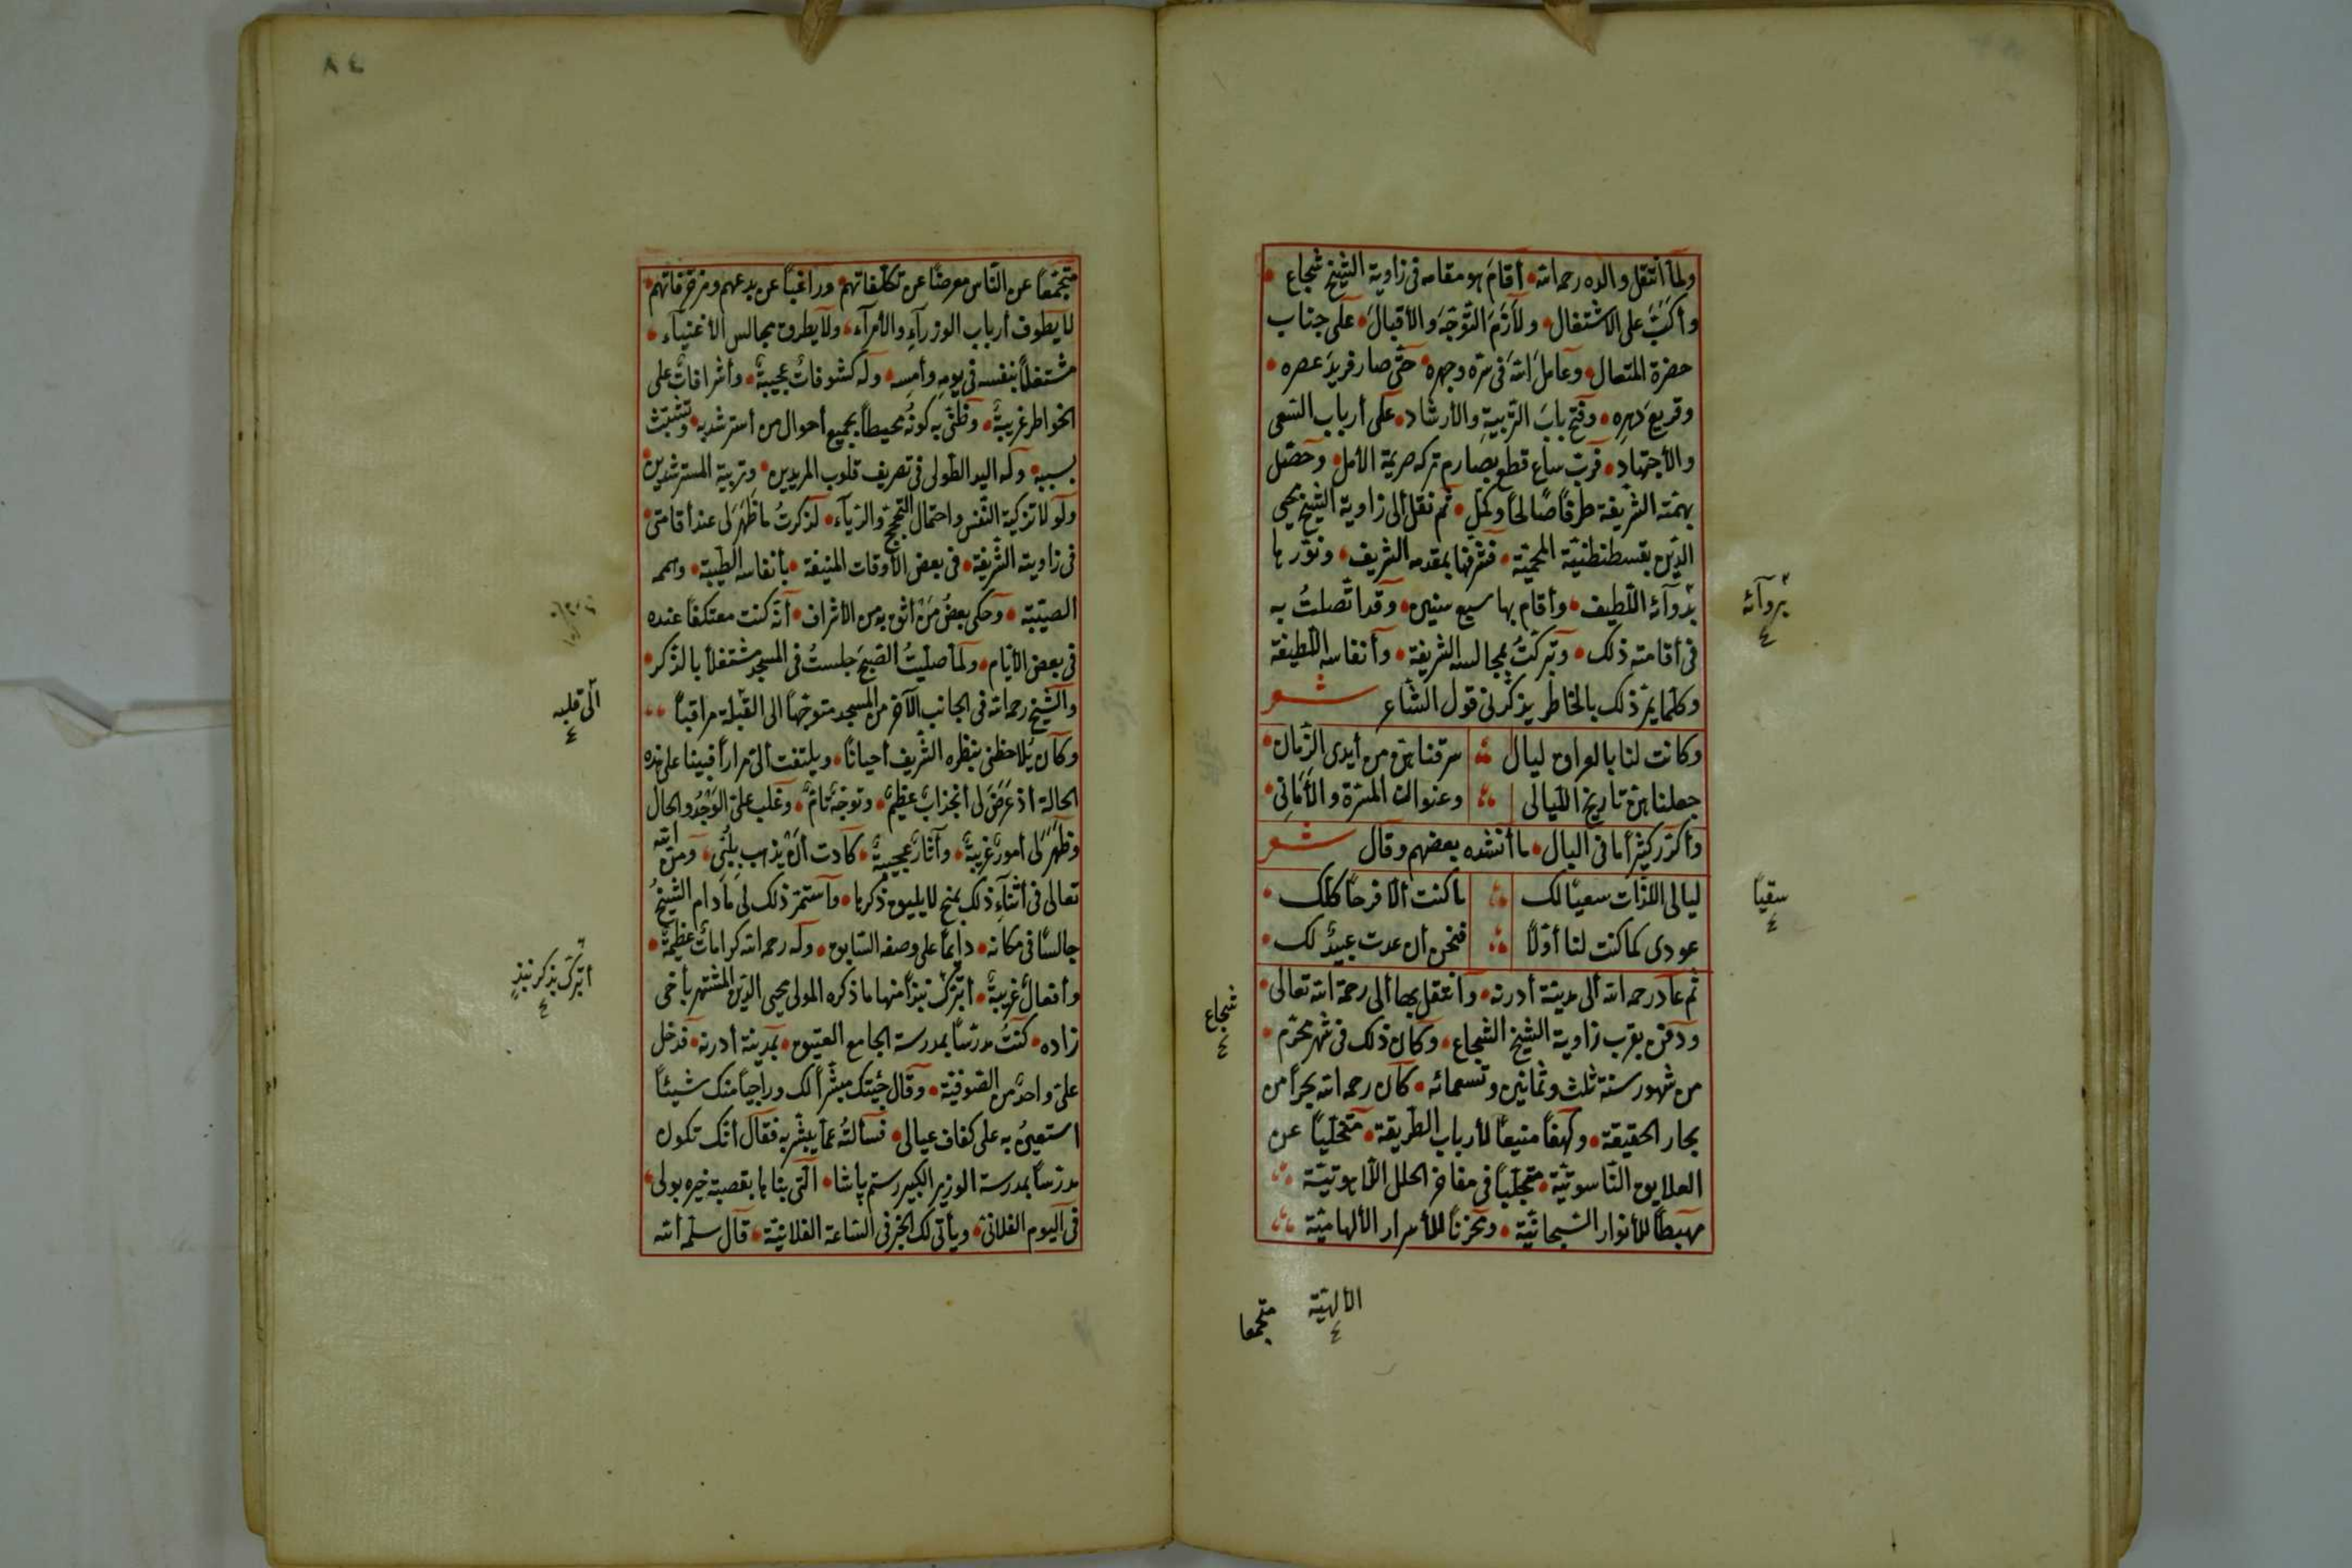 ولما انتقل والده رحمه الله أقام هو مقامه فى زاوية الشيخ شجاع
وأكب على الاشتغال ولازم التوجه والأقبال على جناب
حضرة المتعال وعامل الله فى سره وجهره حتى صار فريد عصره
وقريع دهره وفتح باب التربية والأرشاد على أرباب السعى
والأجتهاد فرب ساع قطع بصارم تركه صريمة الأمل وحصل
بهمته الشريفة طرفا صالحا وكمل ثم نقل ألى زاوية الشيخ محيى
الدين بقسطنطنية المحمية فشرفها بمقدمه الشريف ونورها
بروآئه اللطيف وأقام بها سبع سنين وقد اتصلت به
فى أقامته ذلك وتبركت بمجالسه الشريفة وأنفاسه اللطيفة
وكلما يمر ذلك بالخاطر يذكرنى قول الشاعر شعر
وكانت لنا بالعراق ليال سرقناهن من أيدى الزمان
جعلناهن تاريخ الليالى وعنوان المسرة والأمانى
وأكرر كثيرا ما فى البال ما أنشده بعضهم وقال شعر
ليالى اللذات سعيا لك ما كنت الا فرحا كلك
عودى كما كنت لنا أولا فنحن أن عدت عبيد لك
ثم عاد رحمه الله ألى مدينة أدرنه وأنتقل بها ألى رحمة الله تعالى
ودفن بقرب زاوية الشيخ الشجاع وكان ذلك فى شهر محرم
من شهور سنة ثلث وثمانين وتسعمائه كان رحمه الله بحرا من
بحار الحقيقة وكهفا منيعا لأرباب الطريقة متخليا عن
العلايق الناسوتية متجليا فى مفاخر الحلل اللاهوتية
مهبطا للأنوار السبحانية ومخزنا للأسرار الألهامية
بروآئه
٤
سقيا
٤
شجاع
٤
الألهية
٤
متجمعا
٨٤
متجمعا عن الناس معرضا عن تكلفاتهم وراغبا عن بدعهم ومزخرفاتهم
لا يطوف أرباب الوزرآء والأمرآء ولا يطرق مجالس الأغنيآء
مشتغلا بنفسه فى يومه وأمسه وله كشوفات عجيبة وأشرافات على
الخواطر غريبة وظنى به كونه محيطا بجميع أحوال من أسترشد به وتشبث
بسببه وله اليد الطولى فى تصريف قلوب المريدين وتربية المسترشدين
ولو لا تزكية النفس واحتمال التبجح والريآء لذكرت ما ظهر لى عند أقامتى
فى زاويته الشريفة فى بعض الأوقات المنيفة بأنفاسه الطيبة وهممه
الصيبة وحكى بعض من أثق به من الأشراف أنه كنت معتكفا عنده
فى بعض الأيام ولما صليت الصبح جلست فى المسجد مشتغلا بالذكر
والشيخ رحمه الله فى الجانب الآخر من المسجد متوجها الى القبلة مراقبا
وكان يلاحظنى بنظره الشريف أحيانا ويلتفت ألى مرارا فبينا على هذه
الحالة أذ عرض لى أنجذاب عظيم وتوجه تام وغلب على الوجد والحال
وظهر لى أمور غريبة وآثار عجيبة كادت أن يذهب بلبى ومن الله
تعالى فى أثنآء ذلك بمنح لا يليق ذكرها وأستمر ذلك لى ما دام الشيخ
جالسا فى مكانه دائما على وصفه السابق وله رحمه الله كرامات عظيمة
وأفعال غريبة أتبرك نبذا منها ما ذكره المولى محيى الدين المشتهر بأخى
زاده كنت مدرسا بمدرسة الجامع العتيق بمدينة أدرنه فدخل
على واحد من الصوفية وقال جئتك مبشرا لك وراجيا منك شيئا
استعين به على كفاف عيالى فسألته عما يبشر به فقال أنك تكون
مدرسا بمدرسة الوزير الكبير رستم پاشا التى بناها بقصبة خيره بولى
فى اليوم الفلانى ويأتى لك الخبر فى الساعة الفلانية قال سلمه الله
ألى قلبه
٤
أتبرك بذكر نبذ
٤